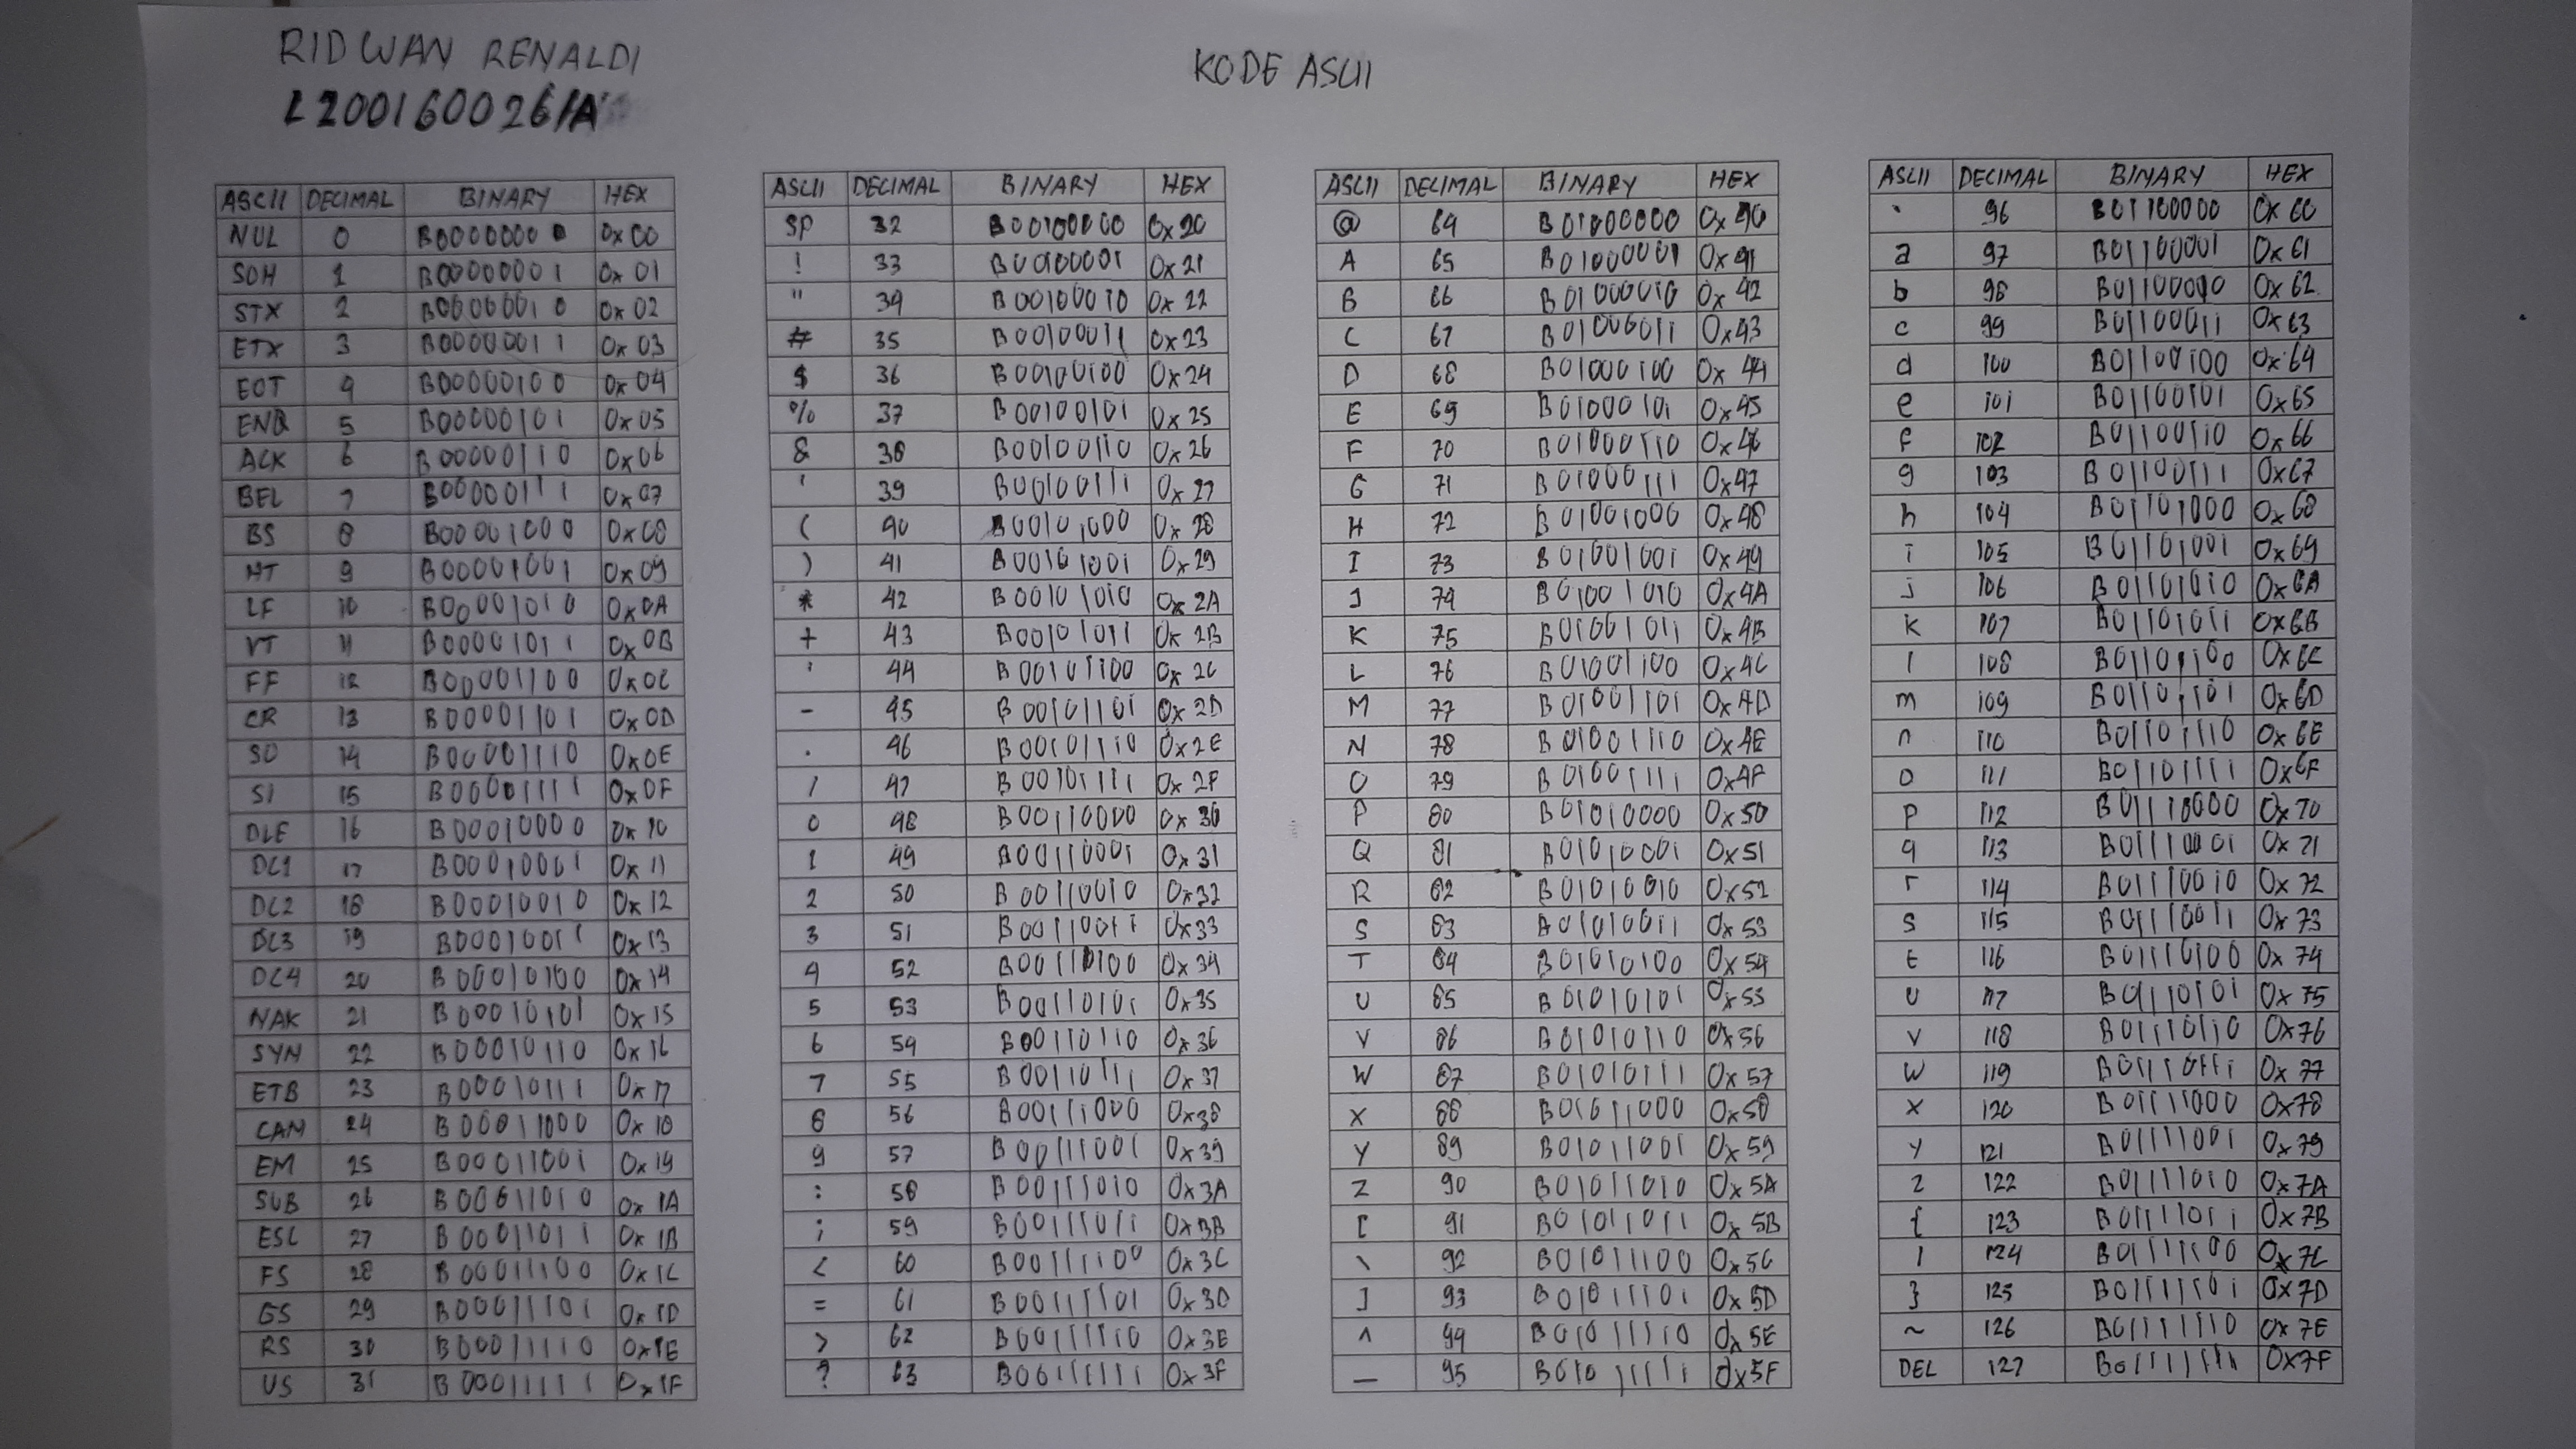 RIDWAN RENALDI
L200160026/A
KODE ASCII
ASCII DECIMAL BINARY HEX
NUL 0 B00000000 0x00
SOH 1 B00000001 0x01
STX 2 B00000010 0x02
ETX 3 B00000011 0x03
EOT 4 B00000100 0x04
ENQ 5 B00000101 0x05
ACK 6 B00000110 0x06
BEL 7 B00000111 0x07
BS 8 B00001000 0x08
HT 9 B00001001 0x09
LF 10 B00001010 0x0A
VT 11 B00001011 0x0B
FF 12 B00001100 0x0C
CR 13 B00001101 0x0D
SO 14 B00001110 0x0E
SI 15 B00001111 0x0F
DLE 16 B00010000 0x10
DC1 17 B00010001 0x11
DC2 18 B00010010 0x12
DC3 19 B00010011 0x13
DC4 20 B00010100 0x14
NAK 21 B00010101 0x15
SYN 22 B00010110 0x16
ETB 23 B00010111 0x17
CAN 24 B00011000 0x18
EM 25 B00011001 0x19
SUB 26 B00011010 0x1A
ESC 27 B00011011 0x1B
FS 28 B00011100 0x1C
GS 29 B00011101 0x1D
RS 30 B00011110 0x1E
US 31 B00011111 0x1F
ASCII DECIMAL BINARY HEX
SP 32 B00100000 0x20
! 33 B00100001 0x21
" 34 B00100010 0x22
# 35 B00100011 0x23
$ 36 B00100100 0x24
% 37 B00100101 0x25
& 38 B00100110 0x26
' 39 B00100111 0x27
( 40 B00101000 0x28
) 41 B00101001 0x29
* 42 B00101010 0x2A
+ 43 B00101011 0x2B
' 44 B00101100 0x2C
- 45 B00101101 0x2D
. 46 B00101110 0x2E
/ 47 B00101111 0x2F
0 48 B00110000 0x30
1 49 B00110001 0x31
2 50 B00110010 0x32
3 51 B00110011 0x33
4 52 B00110100 0x34
5 53 B00110101 0x35
6 54 B00110110 0x36
7 55 B00110111 0x37
8 56 B00111000 0x38
9 57 B00111001 0x39
: 58 B00111010 0x3A
; 59 B00111011 0x3B
< 60 B00111100 0x3C
= 61 B00111101 0x3D
> 62 B00111110 0x3E
? 63 B00111111 0x3F
ASCII DECIMAL BINARY HEX
@ 64 B01000000 0x40
A 65 B01000001 0x41
B 66 B01000010 0x42
C 67 B01000011 0x43
D 68 B01000100 0x44
E 69 B01000101 0x45
F 70 B01000110 0x46
G 71 B01000111 0x47
H 72 B01001000 0x48
I 73 B01001001 0x49
J 74 B01001010 0x4A
K 75 B01001011 0x4B
L 76 B01001100 0x4C
M 77 B01001101 0x4D
N 78 B01001110 0x4E
O 79 B01001111 0x4F
P 80 B01010000 0x50
Q 81 B01010001 0x51
R 82 B01010010 0x52
S 83 B01010011 0x53
T 84 B01010100 0x54
U 85 B01010101 0x55
V 86 B01010110 0x56
W 87 B01010111 0x57
X 88 B01011000 0x58
Y 89 B01011001 0x59
Z 90 B01011010 0x5A
[ 91 B01011011 0x5B
\ 92 B01011100 0x5C
] 93 B01011101 0x5D
^ 94 B01011110 0x5E
_ 95 B01011111 0x5F
ASCII DECIMAL BINARY HEX
` 96 B01100000 0x60
a 97 B01100001 0x61
b 98 B01100010 0x62
c 99 B01100011 0x63
d 100 B01100100 0x64
e 101 B01100101 0x65
f 102 B01100110 0x66
g 103 B01100111 0x67
h 104 B01101000 0x68
i 105 B01101001 0x69
j 106 B01101010 0x6A
k 107 B01101011 0x6B
l 108 B01101100 0x6C
m 109 B01101101 0x6D
n 110 B01101110 0x6E
o 111 B01101111 0x6F
p 112 B01110000 0x70
q 113 B01110001 0x71
r 114 B01110010 0x72
s 115 B01110011 0x73
t 116 B01110100 0x74
u 117 B01110101 0x75
v 118 B01110110 0x76
w 119 B01110111 0x77
x 120 B01111000 0x78
y 121 B01111001 0x79
z 122 B01111010 0x7A
{ 123 B01111011 0x7B
| 124 B01111100 0x7C
} 125 B01111101 0x7D
~ 126 B01111110 0x7E
DEL 127 B01111111 0x7F